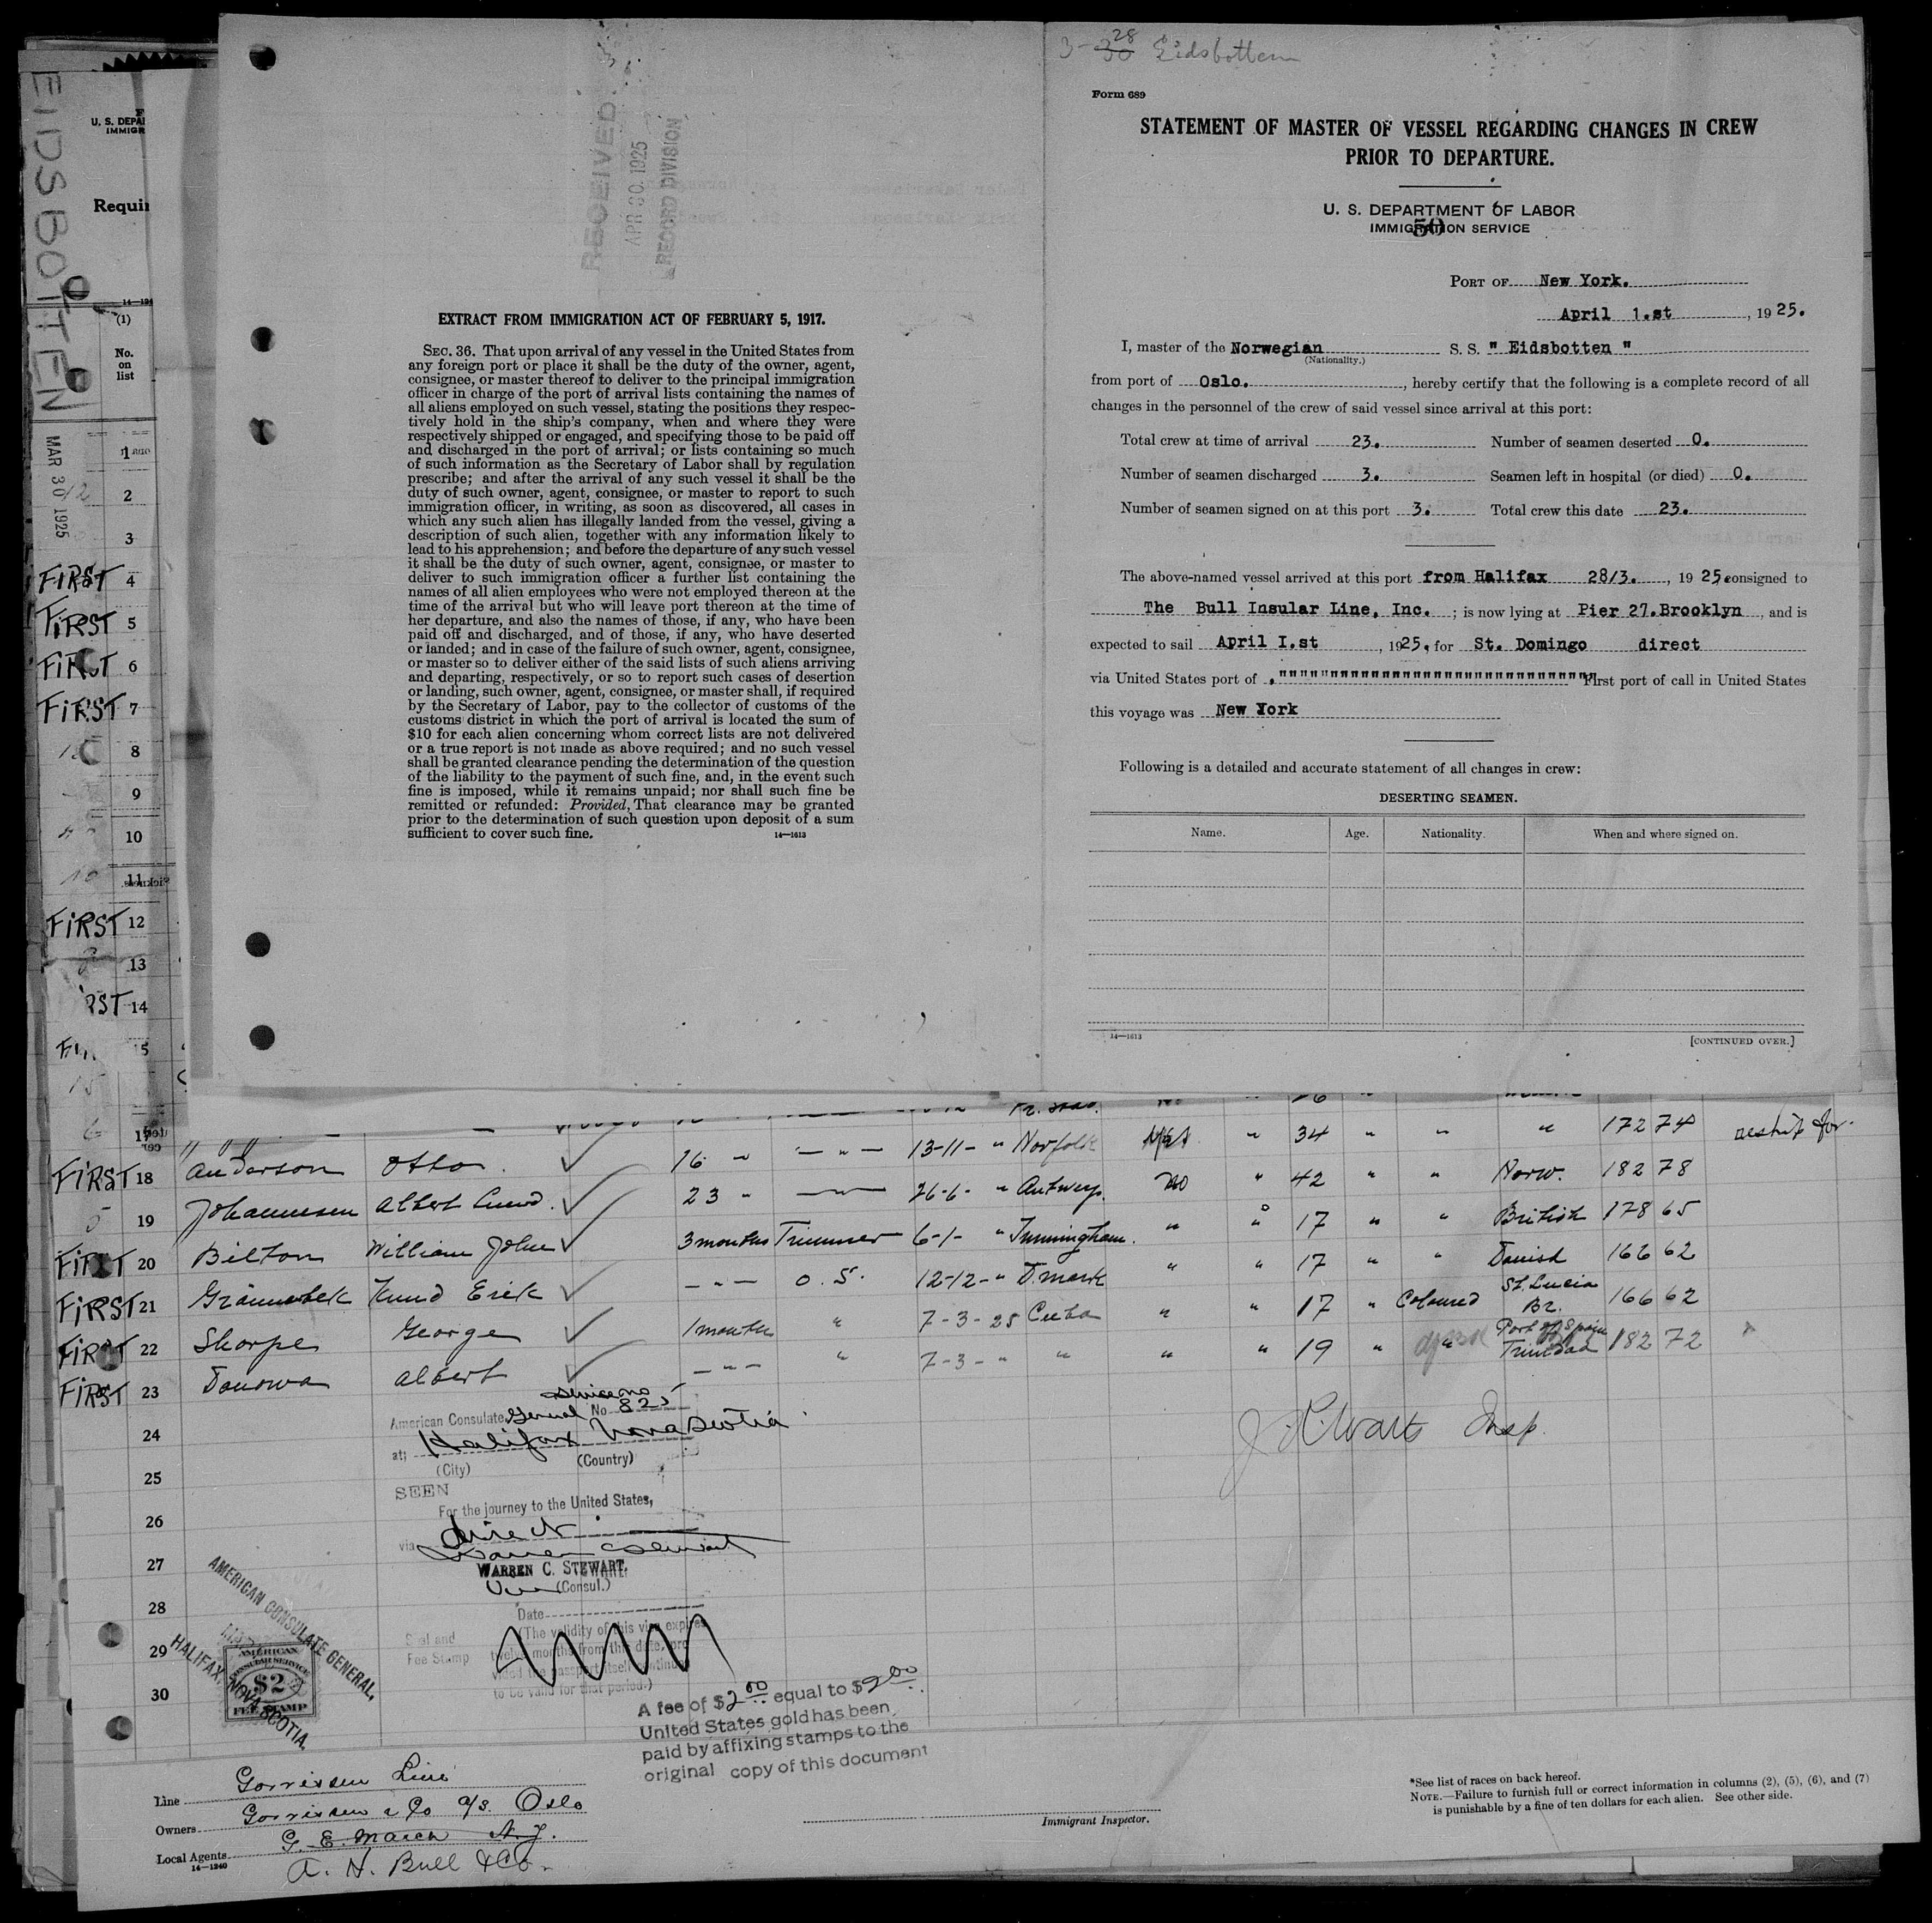 EIDSBOTTEN
U. S. DEPA
IMMIGR
Requir
14—124
(1)
No.
on
list
MAR 30 1925
1
2
3
FIRST 4
FIRST 5
FIRST 6
FIRST 7
8
9
10
11
FIRST 12
13
RST 14
15
RECEIVED
APR 30 1925
RECORD DIVISION
EXTRACT FROM IMMIGRATION ACT OF FEBRUARY 5, 1917.
SEC. 36. That upon arrival of any vessel in the United States from
any foreign port or place it shall be the duty of the owner, agent,
consignee, or master thereof to deliver to the principal immigration
officer in charge of the port of arrival lists containing the names of
all aliens employed on such vessel, stating the positions they respec-
tively hold in the ship's company, when and where they were
respectively shipped or engaged, and specifying those to be paid off
and discharged in the port of arrival; or lists containing so much
of such information as the Secretary of Labor shall by regulation
prescribe; and after the arrival of any such vessel it shall be the
duty of such owner, agent, consignee, or master to report to such
immigration officer, in writing, as soon as discovered, all cases in
which any such alien has illegally landed from the vessel, giving a
description of such alien, together with any information likely to
lead to his apprehension; and before the departure of any such vessel
it shall be the duty of such owner, agent, consignee, or master to
deliver to such immigration officer a further list containing the
names of all alien employees who were not employed thereon at the
time of the arrival but who will leave port thereon at the time of
her departure, and also the names of those, if any, who have been
paid off and discharged, and of those, if any, who have deserted
or landed; and in case of the failure of such owner, agent, consignee,
or master so to deliver either of the said lists of such aliens arriving
and departing, respectively, or so to report such cases of desertion
or landing, such owner, agent, consignee, or master shall, if required
by the Secretary of Labor, pay to the collector of customs of the
customs district in which the port of arrival is located the sum of
$10 for each alien concerning whom correct lists are not delivered
or a true report is not made as above required; and no such vessel
shall be granted clearance pending the determination of the question
of the liability to the payment of such fine, and, in the event such
fine is imposed, while it remains unpaid; nor shall such fine be
remitted or refunded: Provided, That clearance may be granted
prior to the determination of such question upon deposit of a sum
sufficient to cover such fine. 14—1613
3-30 28 Eidsbotten
Form 689
STATEMENT OF MASTER OF VESSEL REGARDING CHANGES IN CREW
PRIOR TO DEPARTURE.
U. S. DEPARTMENT OF LABOR
IMMIGRATION SERVICE
50
PORT OF New York.
April 1.st, 1925.
I, master of the Norwegian S. S. " Eidsbotten "
(Nationality.)
from port of Oslo., hereby certify that the following is a complete record of all
changes in the personnel of the crew of said vessel since arrival at this port:
Total crew at time of arrival 23. Number of seamen deserted 0.
Number of seamen discharged 3. Seamen left in hospital (or died) 0.
Number of seamen signed on at this port 3. Total crew this date 23.
The above-named vessel arrived at this port from Halifax 28/3., 1925, consigned to
The Bull Insular Line, Inc. ; is now lying at Pier 27. Brooklyn, and is
expected to sail April I.st, 1925, for St. Domingo direct
via United States port of """""""""""""""""""""""""""""" First port of call in United States
this voyage was New York
Following is a detailed and accurate statement of all changes in crew:
DESERTING SEAMEN.
Name. Age. Nationality. When and where signed on.
14—1613 [CONTINUED OVER.]
17 34 " " " 172 74
FIRST 18 Anderson Otto. 16 " — " — 13-11- " Norfolk " 42 " " Norw. 182 78
19 Johannesen Albert Lund. 23 " 26-6- " Antwerp. No " 17 " " British 178 65
FIRST 20 Bilton William John 3 months Trimmer 6-1- " " " 17 " " Danish 166 62
FIRST 21 Knud Erik — " — O. S. 12-12- " D.mark " " 17 " Coloured St. Lucia Br. 166 62
FIRST 22 Sharpe George 1 months " 7-3-25 Cuba " " 19 " " Port of Spain Trinidad 182 72
FIRST 23 Donowa Albert — " — " 7-3- " " "
24
25
26
27
28
29
30
Service No
American Consulate General No. 825
at; Halifax Nova Scotia
(City) (Country)
SEEN
For the journey to the United States,
via direct
Warren C Stewart
WARREN C. STEWART,
Vice (Consul.)
Date
Seal and
Fee Stamp
(The validity of this visa expires
twelve months from this date, pro-
vided the passport itself continues
to be valid for that period.)
Insp.
AMERICAN CONSULATE GENERAL,
HALIFAX, NOVA SCOTIA.
AMERICAN
CONSULAR SERVICE
$2
FEE STAMP
A fee of $2 00 equal to $2 00
United States gold has been
paid by affixing stamps to the
original copy of this document
Line Gorrissen Line
Owners Gorrissen & Co a/s. Oslo
Local Agents G. E. March N. Y.
A. H. Bull & Co.
14—1240
Immigrant Inspector.
*See list of races on back hereof.
NOTE.—Failure to furnish full or correct information in columns (2), (5), (6), and (7)
is punishable by a fine of ten dollars for each alien. See other side.